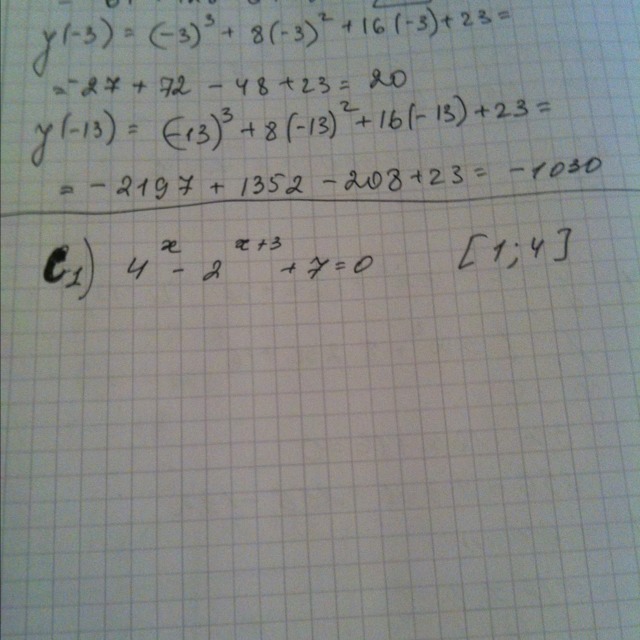 y(-3) = (-3)³ + 8(-3)² + 16(-3) + 23 =
= -27 + 72 - 48 + 23 = 20
y(-13) = (-13)³ + 8(-13)² + 16(-13) + 23 =
= -2197 + 1352 - 208 + 23 = -1030
C₁) 4ˣ - 2ˣ⁺³ + 7 = 0 [1; 4]